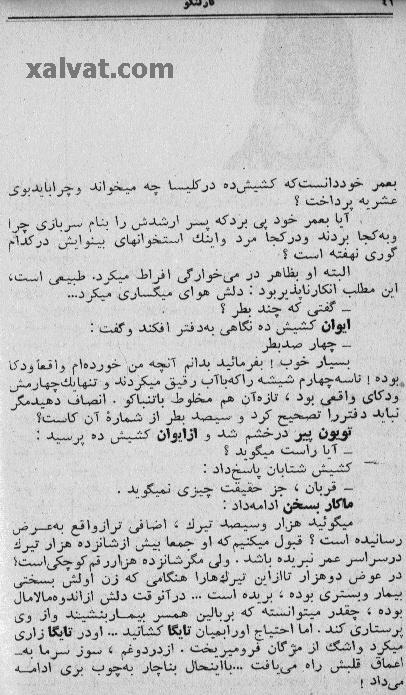 ۴۱
كارلنكو
xalvat.com
بعمر خوددانست‌که کشیش‌ده درکلیسا چه میخواند وچرابایدبوی
عشریه پرداخت ؟
آیا بعمر خود پی بردکه پسر ارشدش را بنام سربازی چرا
وبه‌کجا بردند ودرکجا مرد واینك استخوانهای بینوایش درکدام
گوری نهفته است ؟
البته او بظاهر در می‌خوارگی افراط میکرد. طبیعی است،
این مطلب انکارناپذیربود : دلش هوای میگساری میکرد...
ـ گفتی که چند بطر ؟
ایوان کشیش ده نگاهی به‌دفتر افکند وگفت :
ـ چهار صدبطر
بسیار خوب ! بفرمائید بدانم آنچه من خورده‌ام واقعاودکا
بوده ! تاسه‌چهارم شیشه راکه‌باآب رقیق میکردند و تنهایك‌چهارمش
ودکای واقعی بود ، تازه‌آن هم مخلوط باتنباکو . انصاف دهیدمگر
نباید دفتررا تصحیح کرد و سیصد بطر از شمارهٔ آن کاست؟
تویون پیر درخشم شد و ازایوان کشیش ده پرسید :
ـ آیا راست میگوید ؟
کشیش شتابان پاسخ‌داد :
ـ قربان ، جز حقیقت چیزی نمیگوید .
ماکار بسخن ادامه‌داد :
میگوئید هزار وسیصد تیرك ، اضافی ترازواقع به‌عرض
رسانیده است ؟ قبول میکنیم‌که او جمعا بیش ازشانزده هزار تیرك
درسراسر عمر نبریده باشد . ولی مگرشانزده هزاررقم‌کوچکی‌است؟
در عوض دوهزار تاازاین تیرك‌هارا هنگامی که زن اولش بسختی
بیمار وبستری بوده ، بریده است ... درآنوقت دلش ازاندوه‌مالامال
بوده ، چقدر میتوانسته که بربالین همسر بیمـاربنشیند واز وی
پرستاری کند . اما احتیاج اورابمیان تایگا کشانید ... اودر تایگا زاری
میکرد واشگ از مژگان فرومیریخت . ازدردوغم ، سوز سرما به‌ـ
اعماق قلبش راه می‌یافت ...بااینحال بناچار به‌چوب بری ادامه
می‌داد !